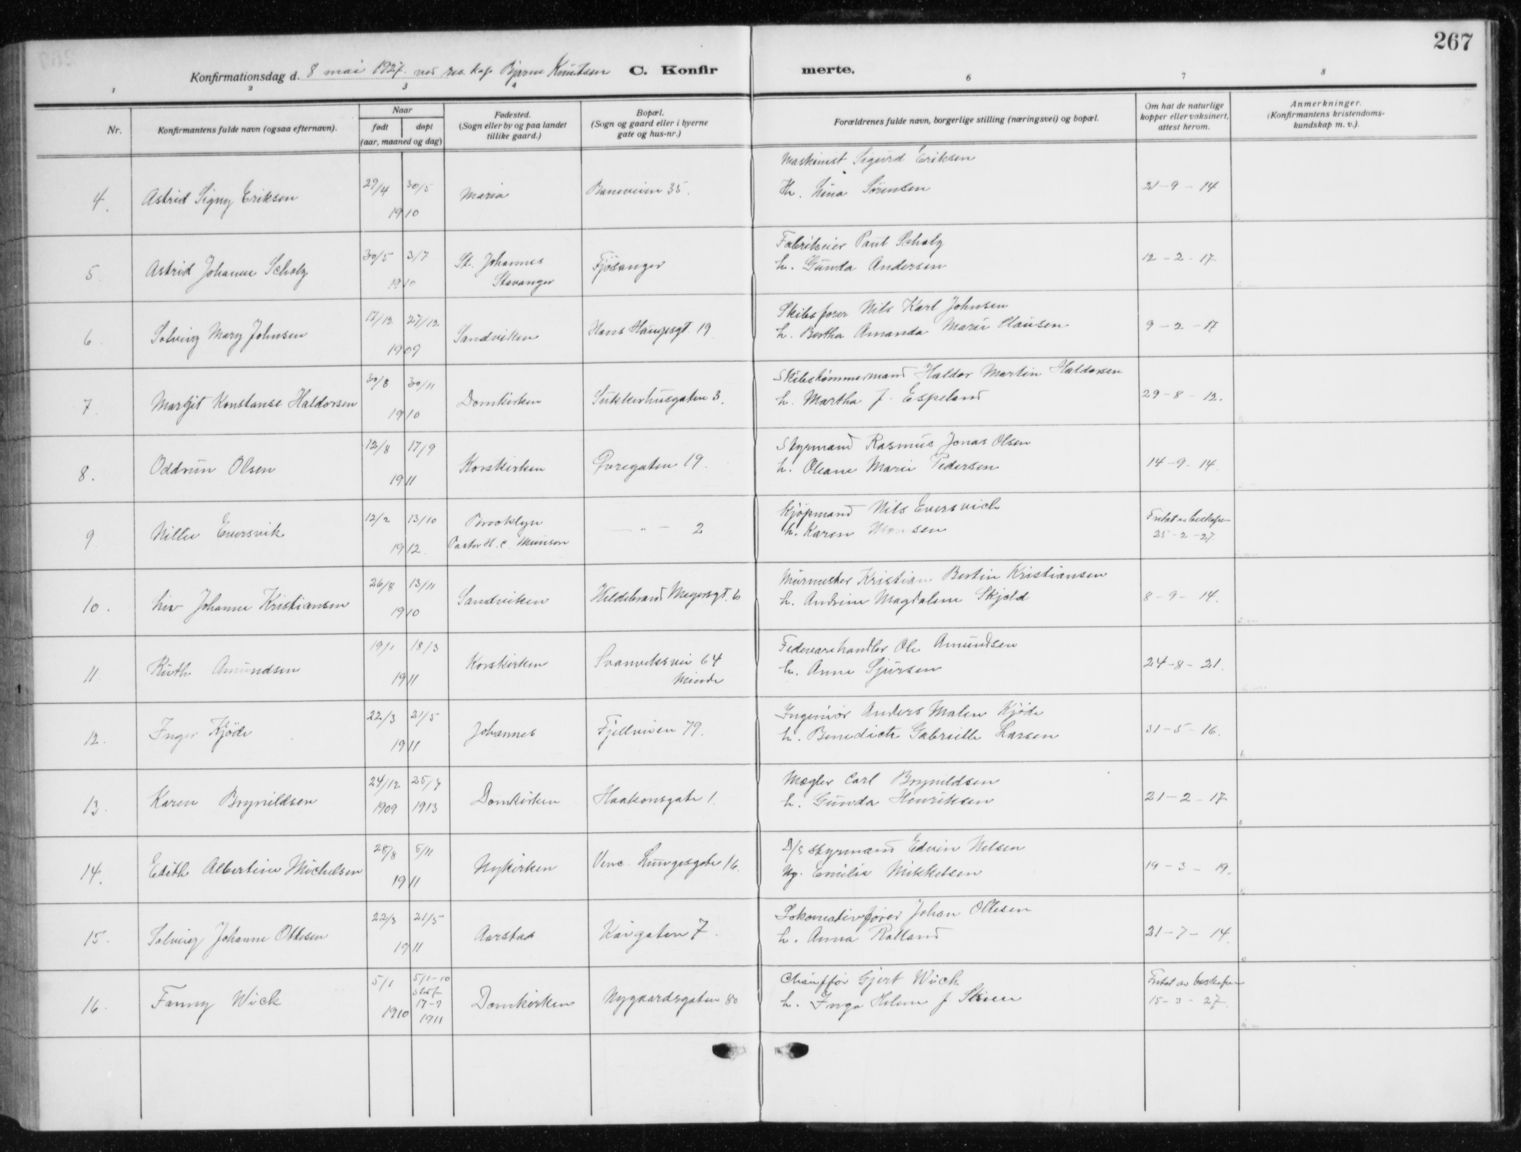 267
Konfirmationsdag d. 8 mai 1927 ved res. kap. Bjarne Knutsen C. Konfirmerte.
1 2 3 4 6 7 8
Nr. Konfirmantens fulde navn (ogsaa efternavn). Naar født døpt (aar, maaned og dag) Fødested. (Sogn eller by og paa landet tillike gaard.) Bopæl. (Sogn og gaard eller i byerne gate og hus-nr.) Forældrenes fulde navn, borgerlige stilling (næringsvei) og bopæl. Om hat de naturlige kopper eller vaksinert, attest herom. Anmerkninger. (Konfirmantens kristendomskundskap m. v.).
Maskinist Sigurd Eriksen
4. Astrid Signy Eriksen 29/4 30/5 1910 Maria Baneveien 35. H. Lina Sørensen 21-9-14
Fabrikeier Paul Scholz
5. Astrid Johanne Scholz 30/5 3/7 1910 St. Johannes Stavanger Fjøsanger h. Gunda Andersen 12-2-17.
Skibsfører Nils Karl Johnsen
6. Solveig Mary Johnsen 27/12 1909 Sandviken Hans Haugesgt 19 h. Bertha Amanda Marie Hansen 9-2-17
Skibstømmermand Haldor Martin Haldorsen
7. Margit Konstanse Haldorsen 30/8 30/11 1910 Domkirken Sukkerhusgaten 3. h. Martha J. Espeland 29-8-12.
Styrmand Rasmus Jonas Olsen
8. Oddrun Olsen 12/8 17/9 1911 Korskirken 19. h. Oleane Marie Pedersen 14-9-14.
Kjøpmand Nils Eversvick
9. Nillie Eversvik 12/2 13/10 1912. Brooklyn Pastor H. C. Munson — " — 2 h. Karen 25-2-27
Murmester Kristian Bertin Kristiansen
10. Liv Johanne Kristiansen 26/8 13/11 1910 Sandviken Hildebrand Meyersgt. 6 h. Andrine Magdalene Skjold 8-9-14.
Fedevarehandler Ole Amundsen
11. Ruth Amundsen 19/1 18/3 1911 Korskirken Svaneviksvei 64 Minde h. Anne Sjursen 24-8-21.
Ingeniør Anders Malen Kjøde
12. Inger Kjøde 22/3 21/5 1911 Johannes Fjellveien 79. h. Benedicte Gabrielle Larsen 31-5-16.
Mægler Carl Brynildsen
13. Karen Brynildsen 24/12 1909 1913 Domkirken Haakonsgate 1. h. Gunda Henriksen 21-2-17
D/S Styrmand Edvin Nelsen
14. Edith Albertine Michelsen 28/8 5/11 1911 Nykirken Vinc. Lungesgate 16. Ug. Emilie Mikkelsen 19-3-19.
Lokomotivfører Johan Ottesen
15. Solveig Johanne Ottesen 22/3 21/5 1911 Aarstad Kaigaten 7. h. Anna Rolland 21-7-14.
Chauffør Gjert Wick
16. Fanny Wick 5/1 1910 5/1-10 17-9 1911 Domkirken Nygaardsgaten 80 h. Inga Helene f Skien 15-3-27.